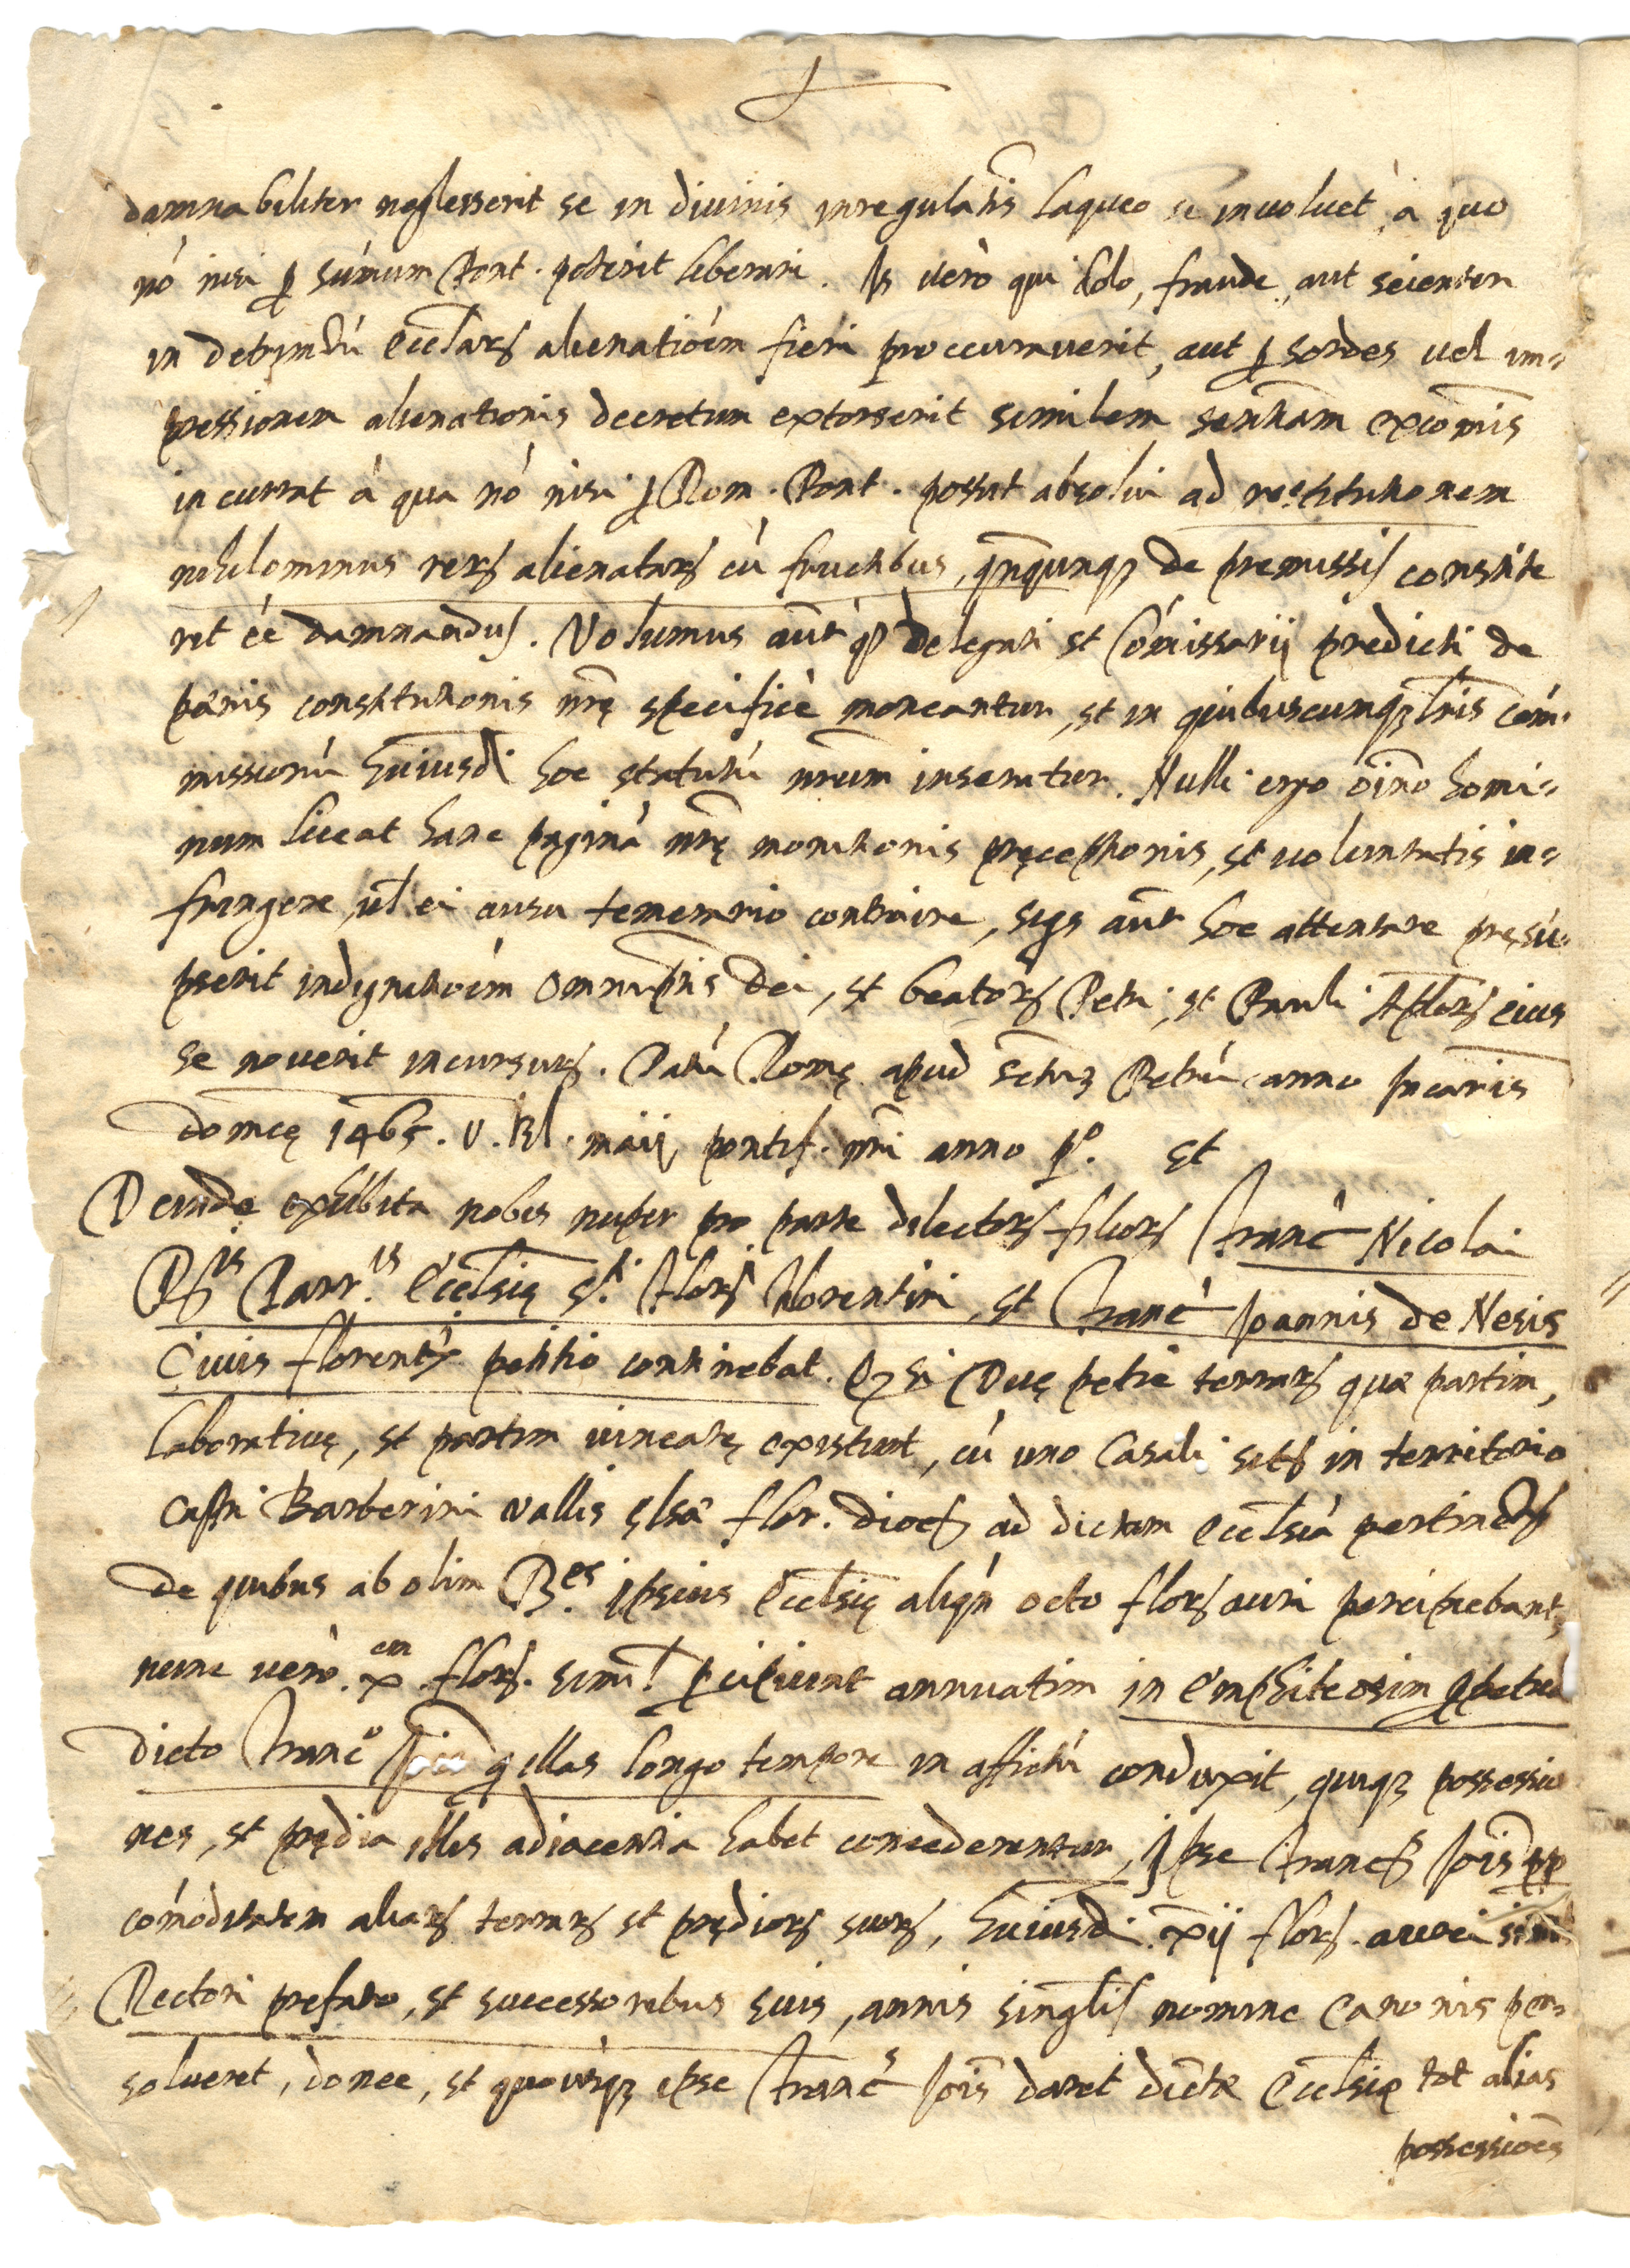 damnabiliter neglesserit se in divinis inregularis laqueo se involvet, à quo
nó nisi ꝑ súmum Pont. poterit liberari. Is uerò qui dolo, fraude, aut scienter
in detrimtú eccłarꝝ alienatioém fieri proccurauerit, aut ꝑ sordes uel im=
pressionem alienationis decretum extorserit similem sentiam excomis
incurrat à qua nó nisi ꝑ Rom. Pont. possit absolui ad restitutionem
nihilominus rerꝝ alienatarꝝ cú fructibus, qnqunqꝫ de premissis constite
rit éé damnandus. Volumus aut ꝙ delegati et Cómissarij predicti de
pænis constitutionis nrę specificè moneantur, et in quibuscunqꝫ lris cóm=
missionú huiusdi hoc statutú nrum inseratur. Nulli ergo oino homi=
num liceat hanc paginá nrę monitionis pręceptionis, et uoluntatis in=
fringere, ul ei ausu temerario contraire, siqs aut hoc attentare pręsú=
pserit indignatioém omniptis Dei, et beatorꝝ Petri, et Pauli Apłorꝝ eius
se nouerit incursurꝝ. Datú Romę apud Sctuꝫ Petrú anno Incarnis
domicę 1465. V. Kl. maij pontif. nri anno pº. Et
Deinde exhibita nobis nuper pro parte dilectorꝝ filiorꝝ Franc Nicolai
Rꝭis Parr.is Ecclsię Sti. Florꝝ Florentini, et Franc Joannis de Nesis
Ciuis florenty petitio continebat. Qꝫ si Duę petię terrarꝝ quæ partim,
laboratiuę, et partim uineatę existunt, cú uno Casali sitꝭ in territorio
Castri Barberini vallis elsæ flor. diocꝭ ad dictam ecclsiá pertinétꝭ
de quibus ab olim R.es ipsius Ecclsię aliqn octo florꝝ auri percipiebant,
nunc uerò x em florꝝ. simil ꝑcipiunt annuatim in emphiteosim ꝑpetuá
dicto Franc.º Jois q illas longo tempore in affictú conduxit, quiqꝫ possessio
nes, et prędia illis adiacentia habet concederentur, Ipse Francꝰ Jois ꝓp
cómoditatem aliarꝝ terrarꝝ et prędiorꝝ suorꝝ, huiusdi. xij florꝝ. auri simi
Rectori prefato, et successoribus suis, annis singlis nomine Canonis per=
solueret, donec, et quousqꝫ ipse Franc.s Jois daret dictæ Ecclsię tot alias
possessioes